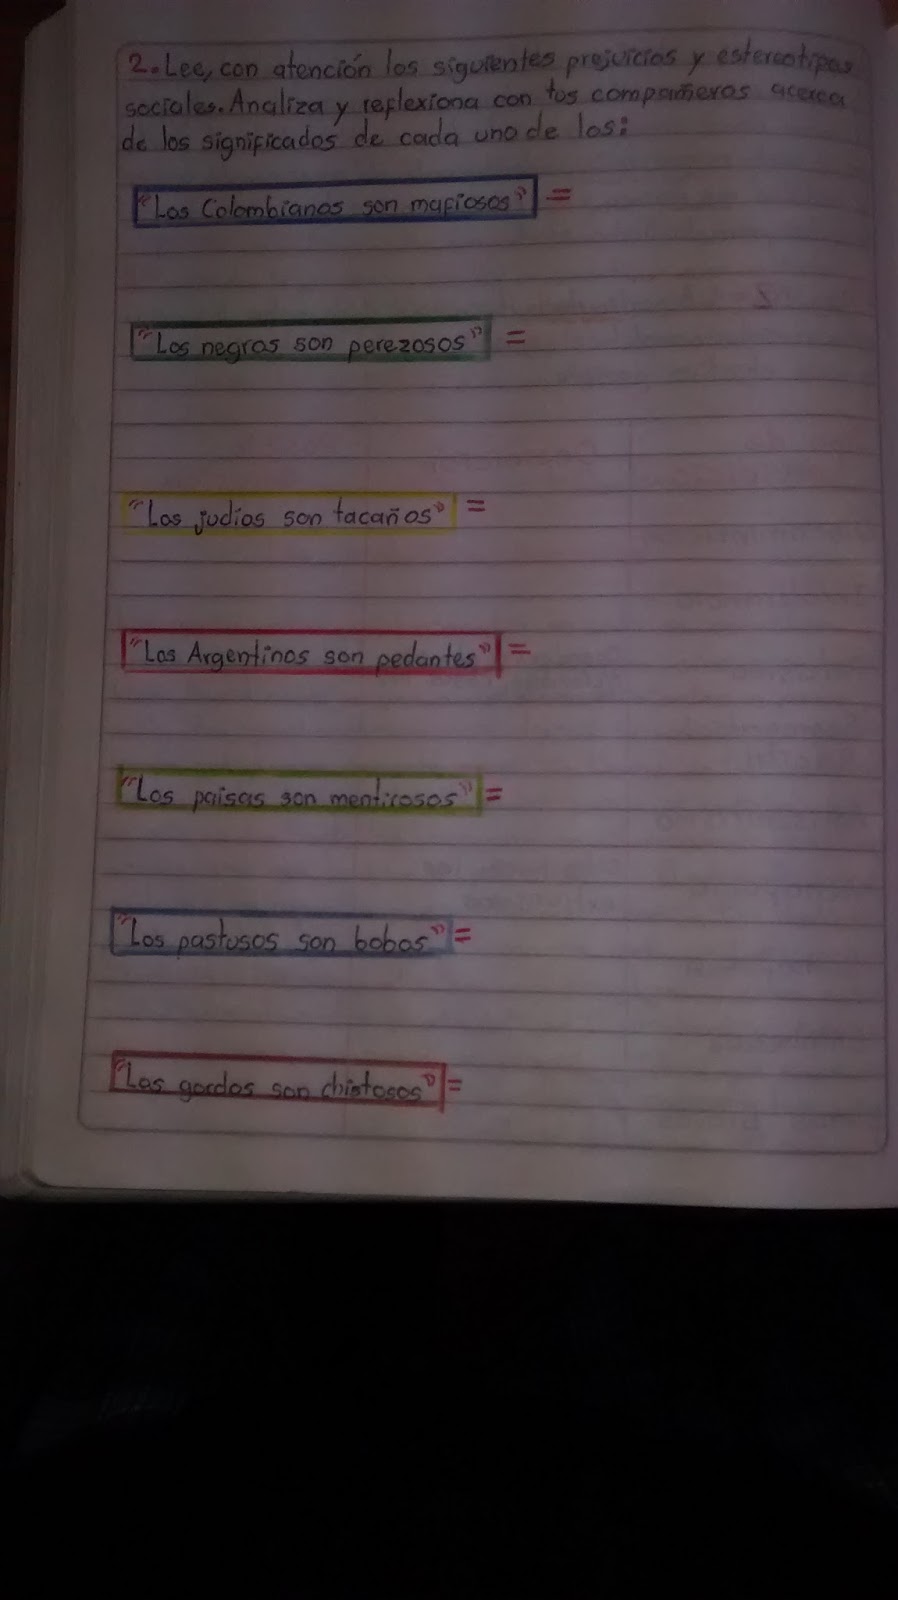 2. Lee, con atención los siguientes prejuicios y estereotipos
sociales. Analiza y reflexiona con tus compañeros acerca
de los significados de cada uno de los:
"Los Colombianos son mafiosos" =
"Los negros son perezosos" =
"Los judios son tacaños" =
"Los Argentinos son pedantes" =
"Los paisas son mentirosos" =
"Los pastusos son bobos" =
"Los gordos son chistosos" =